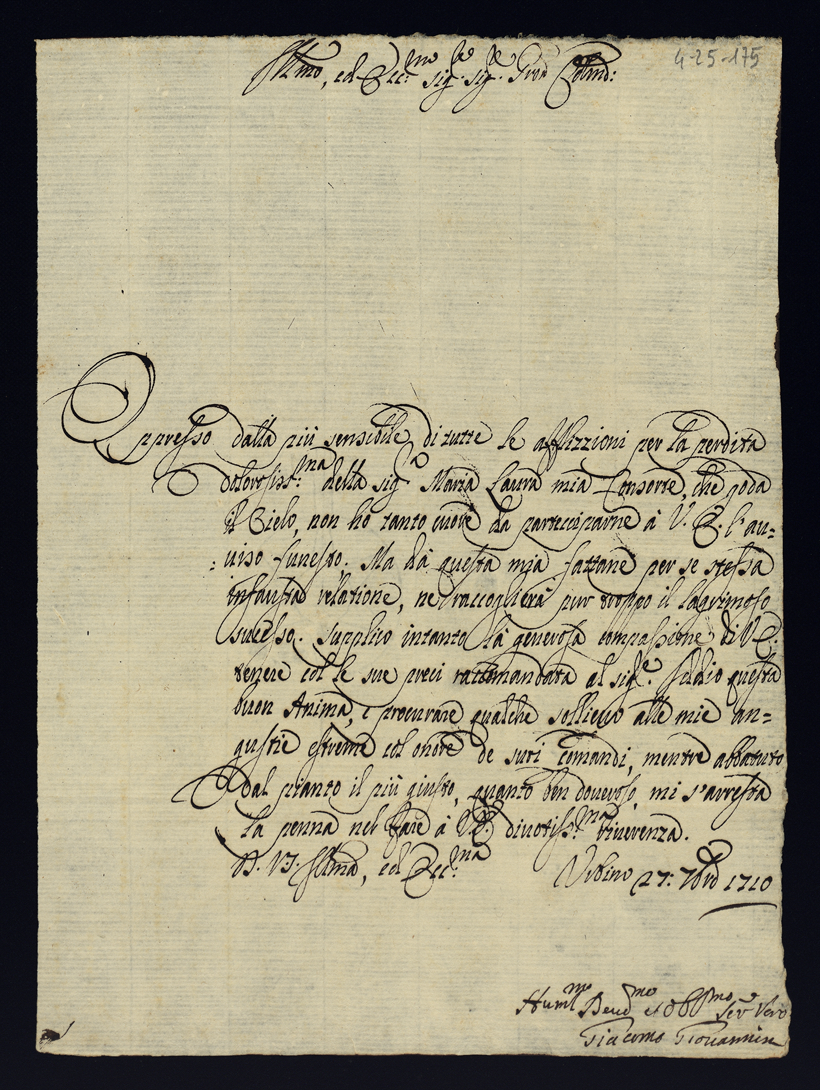 4-25-175
Illmo, ed Ecc:mo sig.re sig.re Pron Colend:
Oppresso dalla più sensibile di tutte le afflizzioni per la perdita
dolorosiss:ma della sig.a Maria Laura mia Consorte, che goda
il Cielo, non ho tanto cuore da parteciparne à V. E. l'au=
:uiso funesto. Ma dà questa mia fattane per se stessa
infausta relatione, ne raccoglierà pur troppo il lagrimoso
sucesso. Supplico intanto la generosa compassione di V E:
tenere col le sue preci raccomandata al sig.re Iddio questa
buon Anima, e procurare qualche sollieuo alle mie an=
gustie estreme col onore de suoi comandi, mentre abbatuto
dal pianto il più giusto, quanto ben doueroso, mi s'arresta
la penna nel fare à V.E. diuotiss:ma riuerenza.
D. V.S. Illma, ed Ecc:ma
Urbino 27: 7bre 1710
Huml.mo Deud.mo et Obb.mo Ser.e Vero
Giacomo Giouannini